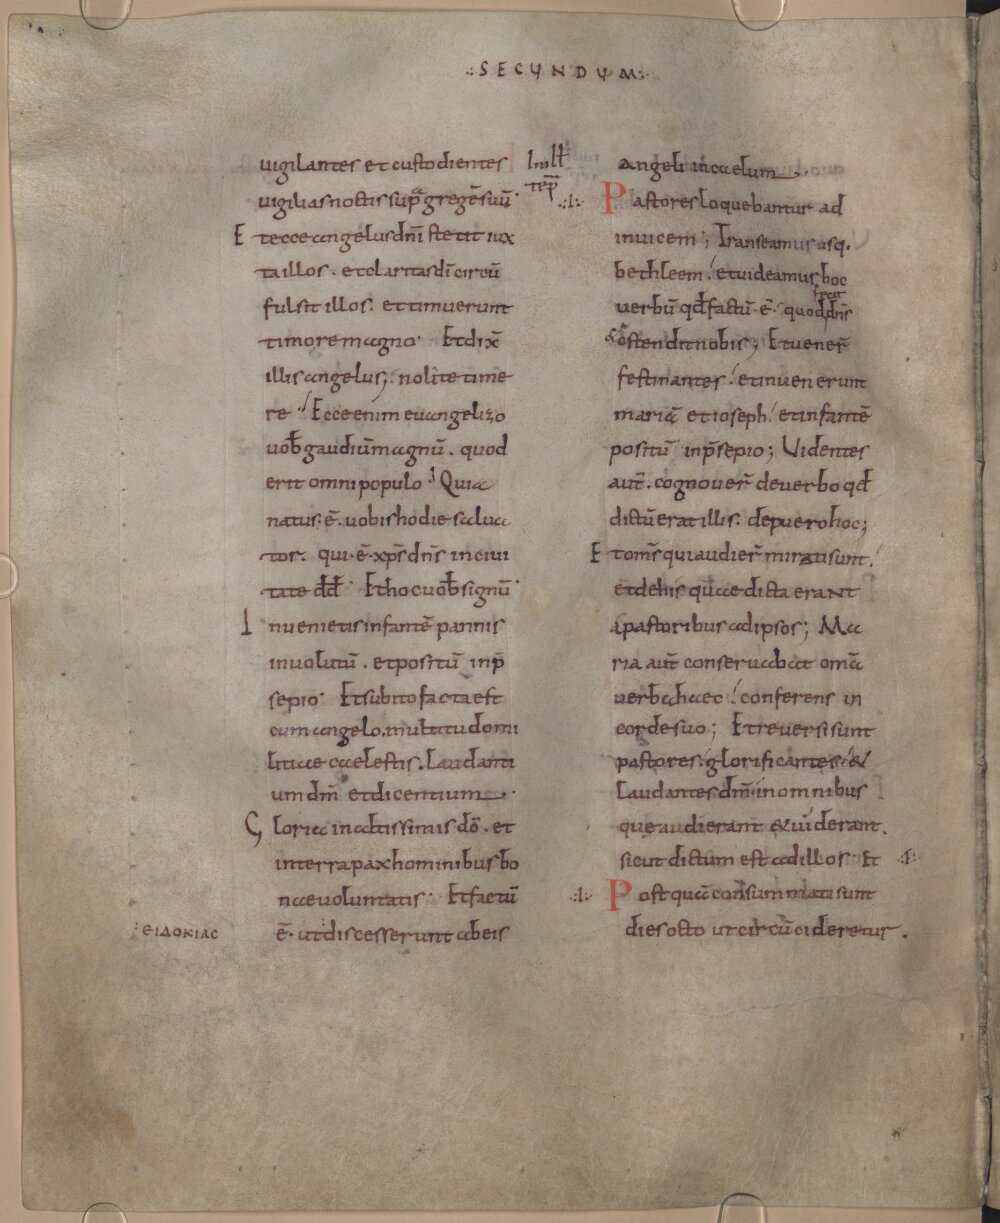 SECUNDUM
uigilantes et custodientes
uigilias noctis sup̄ gregē suū.
Et ecce angelus dn̄i stetit iux
ta illos. et claritas dī circū
fulsit illos. et timuerunt
timore magno. Et dix̄
illis angelus; nolite time
re. Ecce enim euangelizo
uob̄ gaudiū magnū. quod
erit omni populo. Quia
natus. ē. uobis hodie salua
tor. qui. ē. xp̄s dn̄s in ciui
tate dd̄. Et hoc uob̄ signū.
Inuenietis infantē pannis
inuolutū. et positū inp̄
sepio. Et subito facta est
cum angelo. multitudo mi
litiae caelestis. laudanti
um dm̄ et dicentium.
Gloria in altissimis dō. et
in terra pax hominibus bo
nae uoluntatis. Et factū
ΕΙΔΟΚΙΑC
ē. ut discesserunt ab eis
angeli in caelum.
.:I:. Pastores loquebantur ad
inuicem; Transeamus usq.
bethleem. et uideamus hoc
uerbū qd̄ factū. ē. quod fecit dn̄s
& ostendit nobis; Et uener̄
festinantes. et inuenerunt
mariā et ioseph. et infantē
positū inp̄sepio; Uidentes
aut̄. cognouer̄ de uerbo qd̄
dictū erat illis. de puero hoc;
Et om̄s qui audier̄ mirati sunt.
et de his quae dicta erant
a pastoribus ad ipsos; Ma
ria aut̄ conseruabat omā
uerba haec. conferens in
corde suo; Et reuersi sunt
pastores. glorificantes &
laudantes dm̄. in omnibus
que audierant & uiderant.
sicut dictum est ad illos. Et
.:I:. Postquā consummati sunt
dies octo ut circūcideretur.